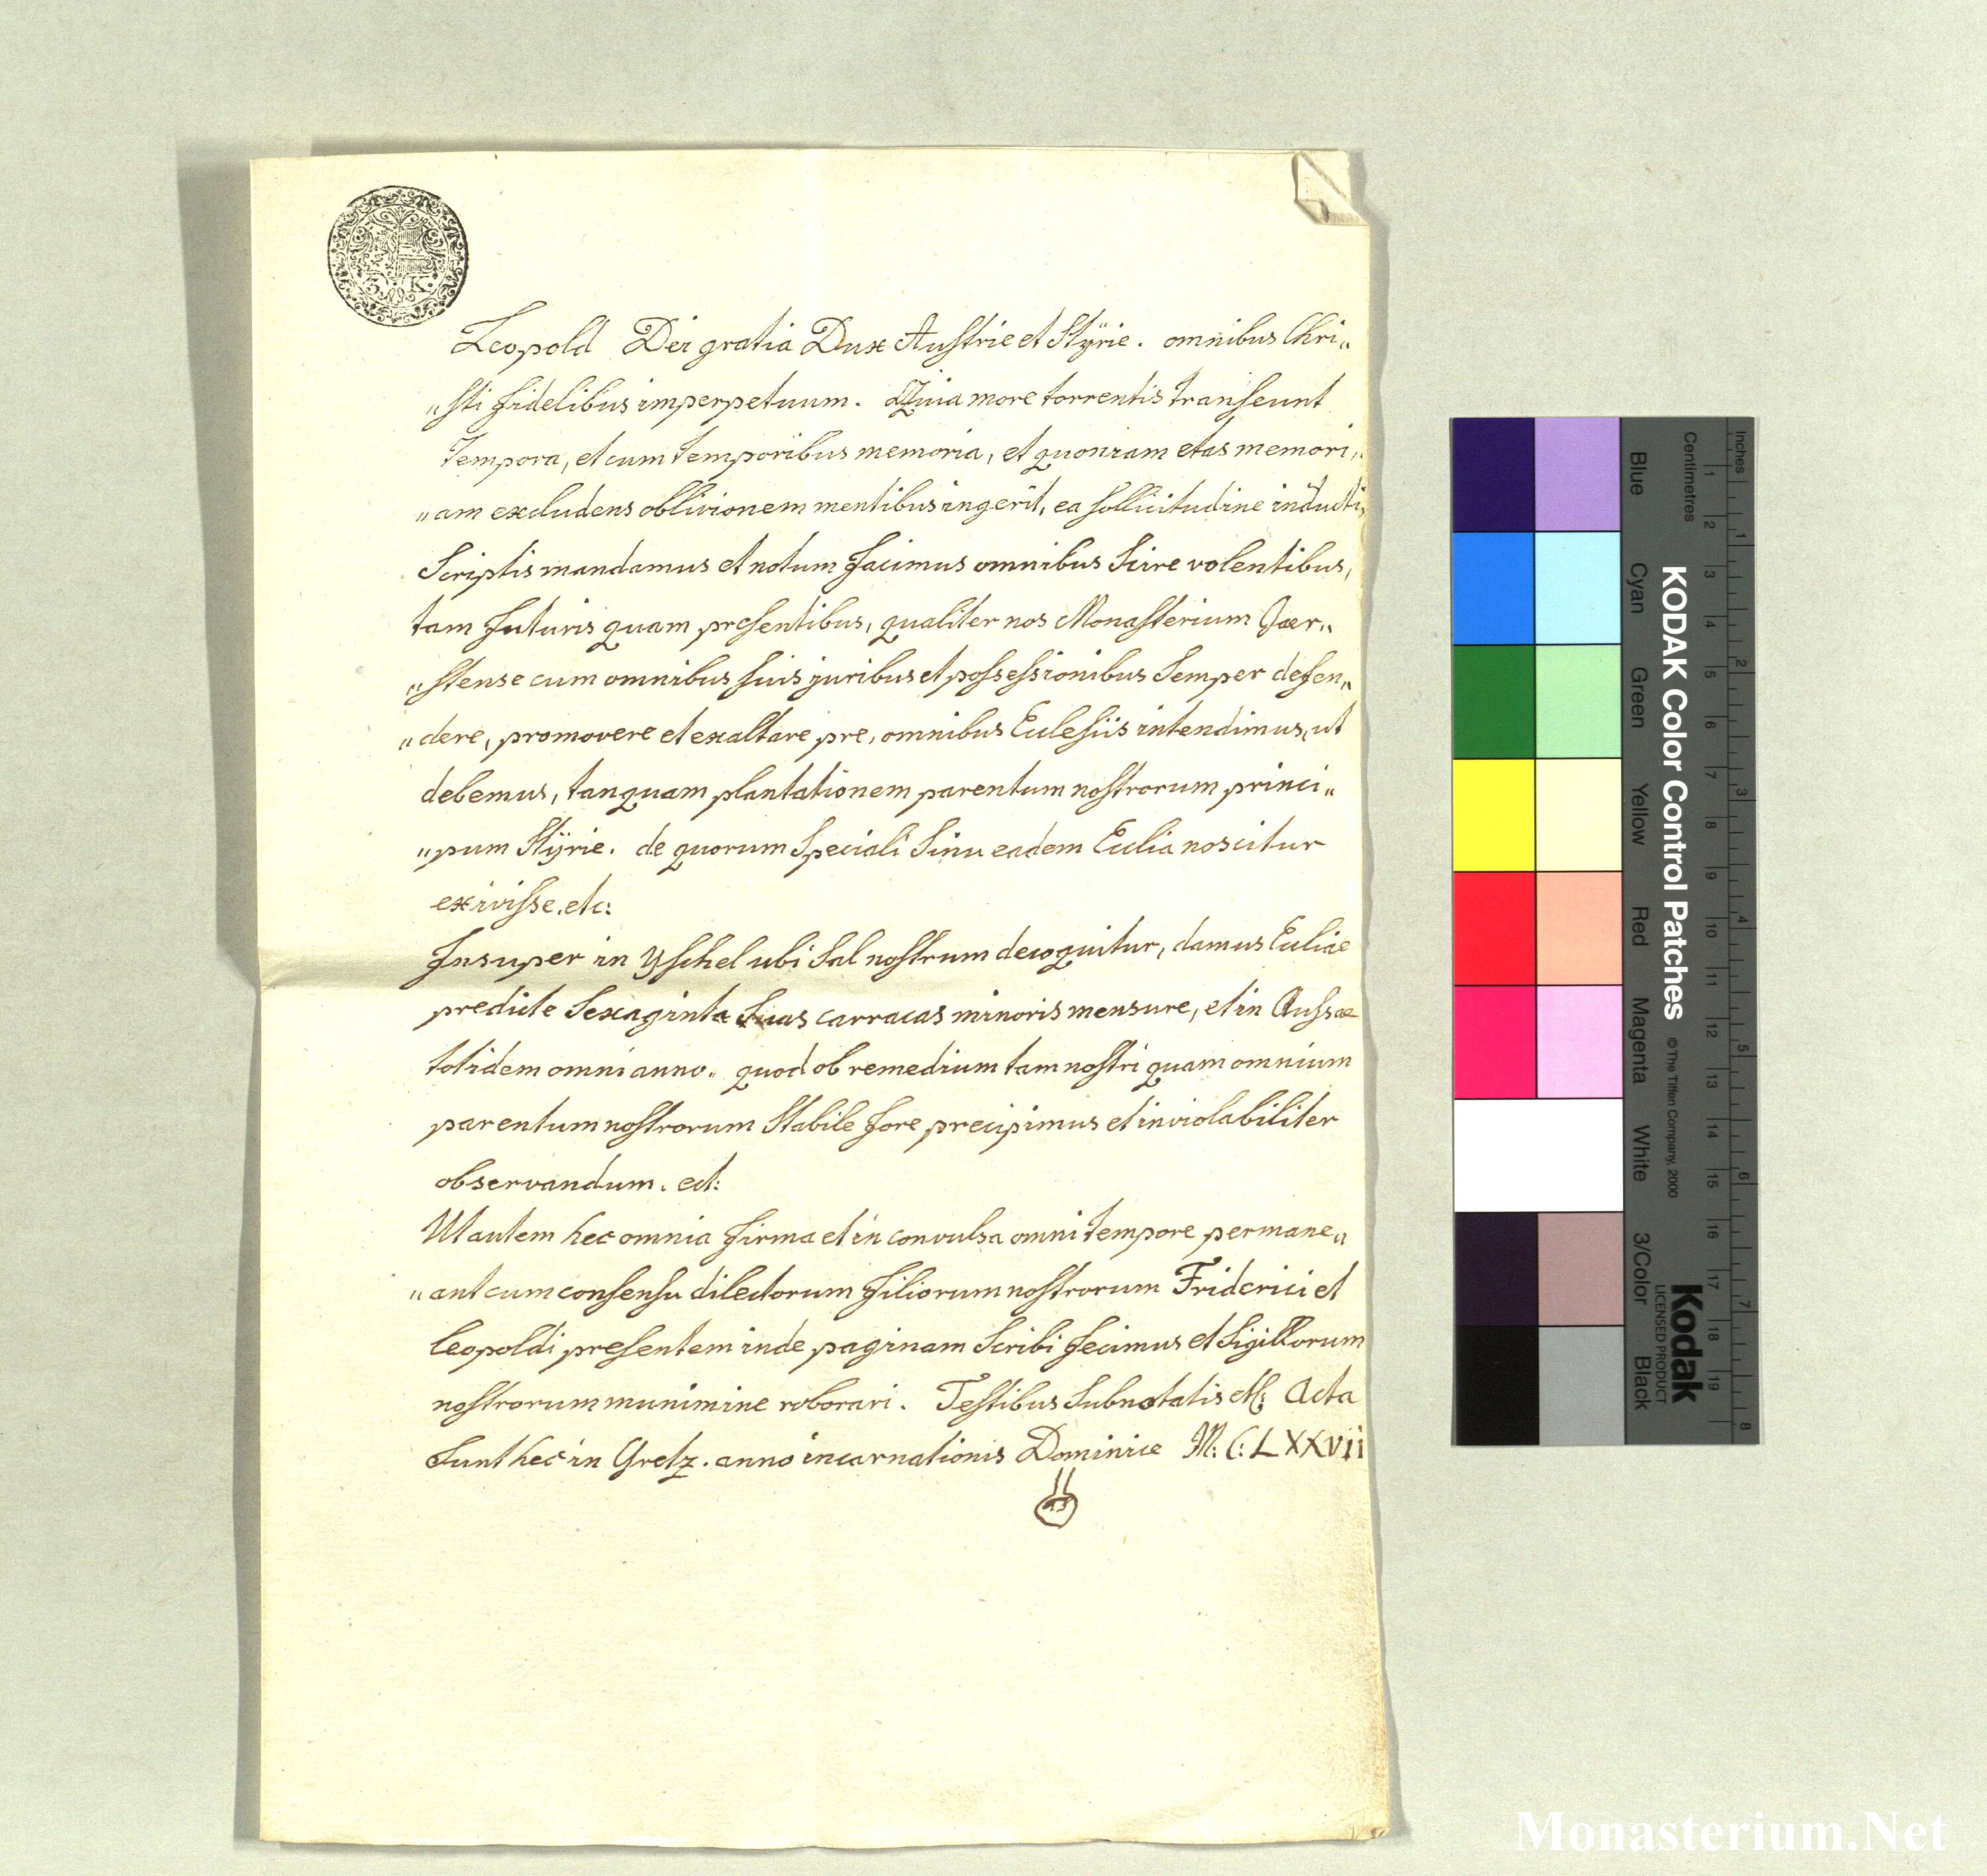 3. K.
Leopold Dei gratia Dux Austrie et Stÿrie. omnibus Chri„
„sti fidelibus imperpetuum. Quia more torrentis transeunt
tempora, et cum temporibus memoria, et quoniam etas memori„
„am excludens oblivionem mentibus ingerit, ea sollicitudine inducti,
Scriptis mandamus et notum facimus omnibus Scire volentibus,
tam futuris quam presentibus, qualiter nos Monasterium Gaer„
„stense cum omnibus suis juribus et possessionibus Semper defen„
„dere, promovere et exaltare pre, omnibus Ecclesiis intendimus, ut
debemus, tanquam plantationem parentum nostrorum princi„
„pum Stÿrie. de quorum Speciali Sinu eadem Ecclia noscitur
exivisse. etc:
Insuper in Yschel ubi Sal nostrum decoquitur, damus Eccliae
predicte Sexaginta Suas carracas minoris mensure, et in Aussae
totidem omni anno. quod ob remedium tam nostri quam omnium
parentum nostrorum Stabile fore precipimus et inviolabiliter
observandum. ect:
Ut autem hec omnia firma et in convulsa omni tempore permane„
„ant cum consensu dilectorum filiorum nostrorum Friderici et
Leopoldi presentem inde paginam Scribi fecimus et Sigillorum
nostrorum munimine roborari. Testibus Subnotatis etc: Acta
Sunt hec in Gretz. anno incarnationis Dominice M: C: LXXVII
KODAK Color Control Patches
© The Tiffen Company, 2000
Kodak
LICENSED PRODUCT
Inches 1 2 3 4 5 6 7 8
Centimetres 1 2 3 4 5 6 7 8 9 10 11 12 13 14 15 16 17 18 19
Blue Cyan Green Yellow Red Magenta White 3/Color Black
Monasterium.Net